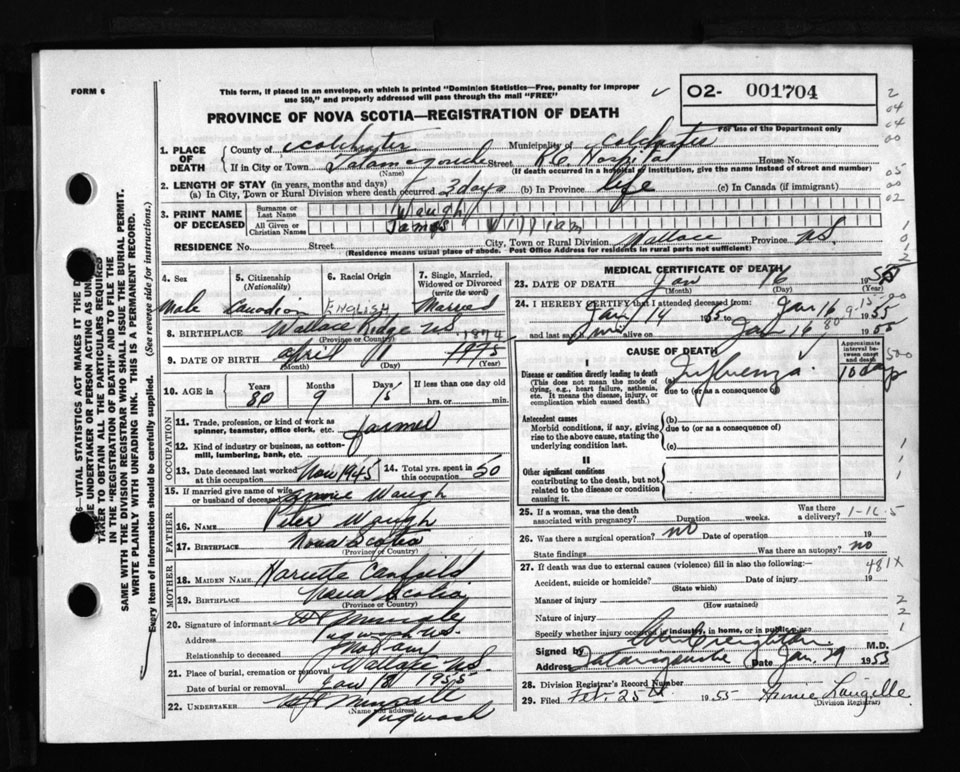 FORM 6
This form, if placed in an envelope, on which is printed "Dominion Statistics—Free, penalty for improper
use $50," and properly addressed will pass through the mail "FREE"
O2- 001704
PROVINCE OF NOVA SCOTIA—REGISTRATION OF DEATH
For use of the Department only
1. PLACE OF DEATH
County of Colchester Municipality of Colchester
If in City or Town Tatamagouche Street Hospital House No.
(Name) (If death occurred in a hospital or institution, give the name instead of street and number)
2. LENGTH OF STAY (in years, months and days)
(a) In City, Town or Rural Division where death occurred 2 days (b) In Province life (c) In Canada (if immigrant)
3. PRINT NAME OF DECEASED
Surname or Last Name Waugh
All Given or Christian Names James William
RESIDENCE No. Street City, Town or Rural Division Wallace Province N.S.
(Residence means usual place of abode. Post Office Address for residents in rural parts not sufficient)
4. Sex Male
5. Citizenship (Nationality) Canadian
6. Racial Origin ENGLISH
7. Single, Married, Widowed or Divorced (write the word) Married
8. BIRTHPLACE Wallace Ridge N.S.
(Province or Country)
1874
9. DATE OF BIRTH April 1 1875
(Month) (Day) (Year)
10. AGE in Years 80 Months 9 Days 15 If less than one day old hrs. or min.
OCCUPATION
11. Trade, profession, or kind of work as spinner, teamster, office clerk, etc. farmer
12. Kind of industry or business, as cotton-mill, lumbering, bank, etc.
13. Date deceased last worked at this occupation Nov 1945
14. Total yrs. spent in this occupation 50
15. If married give name of wife or husband of deceased Waugh
FATHER
16. NAME Peter Waugh
17. BIRTHPLACE Nova Scotia
(Province or Country)
MOTHER
18. MAIDEN NAME Canfield
19. BIRTHPLACE Nova Scotia
(Province or Country)
20. Signature of informant
Address Pugwash N.S.
Relationship to deceased
21. Place of burial, cremation or removal Wallace N.S.
Date of burial or removal Jan 18 1955
22. UNDERTAKER
(Name and address)
Pugwash
MEDICAL CERTIFICATE OF DEATH
23. DATE OF DEATH Jan 16 1955
(Month) (Day) (Year)
24. I HEREBY CERTIFY that I attended deceased from
Jan 14 1955 to Jan 16 1955
and last saw him alive on Jan 16 1955
CAUSE OF DEATH
Approximate interval between onset and death
I
Disease or condition directly leading to death
(This does not mean the mode of dying, e.g., heart failure, asthenia, etc. It means the disease, injury, or complication which caused death.)
(a) Influenza 10 days
due to (or as a consequence of)
Antecedent causes
Morbid conditions, if any, giving rise to the above cause, stating the underlying condition last.
(b)
due to (or as a consequence of)
(c)
II
Other significant conditions
contributing to the death, but not related to the disease or condition causing it.
25. If a woman, was the death associated with pregnancy? Duration weeks. Was there a delivery?
26. Was there a surgical operation? no Date of operation 19
State findings Was there an autopsy? no
27. If death was due to external causes (violence) fill in also the following:
481X
Accident, suicide or homicide? Date of injury 19
(State which)
Manner of injury
(How sustained)
Nature of injury
Specify whether injury occurred in industry, in home, or in public place
Signed by Creighton M.D.
Address Tatamagouche Date Jan. 29 1955
28. Division Registrar's Record Number
29. Filed Feb. 25th 1955 Langille
(Division Registrar)
VITAL STATISTICS ACT MAKES IT THE
UNDERTAKER OR PERSON ACTING AS
TAKER TO OBTAIN ALL THE PARTICULARS REQUIRED
IN THE "REGISTRATION OF DEATH" AND TO FILE THE
SAME WITH THE DIVISION REGISTRAR WHO SHALL ISSUE THE BURIAL PERMIT.
WRITE PLAINLY WITH UNFADING INK. THIS IS A PERMANENT RECORD.
Every item of information should be carefully supplied. (See reverse side for instructions.)